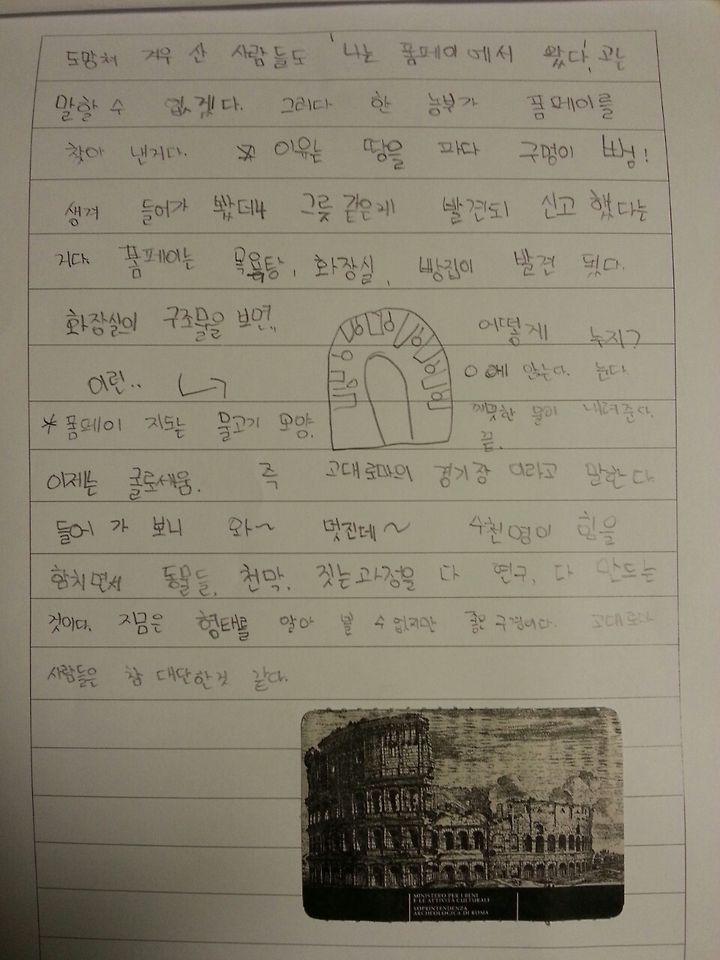 도망쳐 겨우 산 사람들도 '나는 폼페이에서 왔다'고는
말할 수 없겠다. 그러다 한 농부가 폼페이를
찾아 낸거다. ※ 이유는 땅을 파다 구멍이 뻐엉!
생겨 들어가 봤데니 그릇 같은게 발견되 신고 했다는
거다. 폼페이는 목욕탕, 화장실, 빵집이 발견 됬다.
화장실의 구조물을 보면,,
이런..
어떻게 누지?
ㅇ에 앉는다. 눈다.
깨끗한 물이 내려준다.
끝.
*폼페이 지도는 물고기 모양.
이제는 콜로세움. 즉 고대로마의 경기장 이라고 말한다.
들어 가 보니 와~ 멋진데~ 수천명이 힘을
합치면서 동물들, 천막, 짓는과정을 다 연구, 다 만드는
것이다. 지금은 형태를 알아 볼 수 없지만 좋은 구경이다. 고대로마
사람들은 참 대단한것 같다.
MINISTERO PER I BENI
E LE ATTIVITÀ CULTURALI
SOPRINTENDENZA
ARCHEOLOGICA DI ROMA